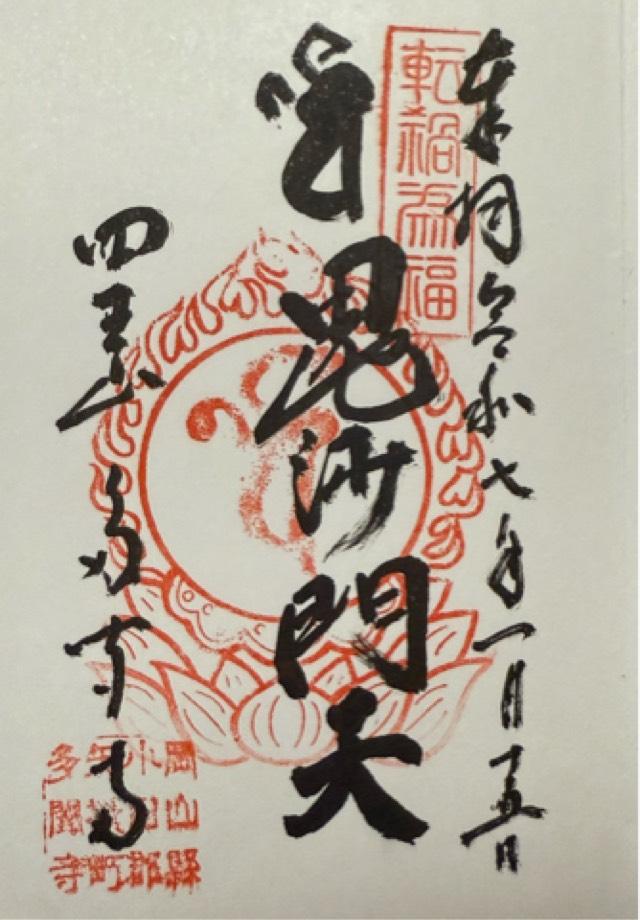 奉拝 令和七年一月十五日
転禍為福
毘沙門天
四王山 多聞寺
岡山縣
小田郡
矢掛町
多聞寺